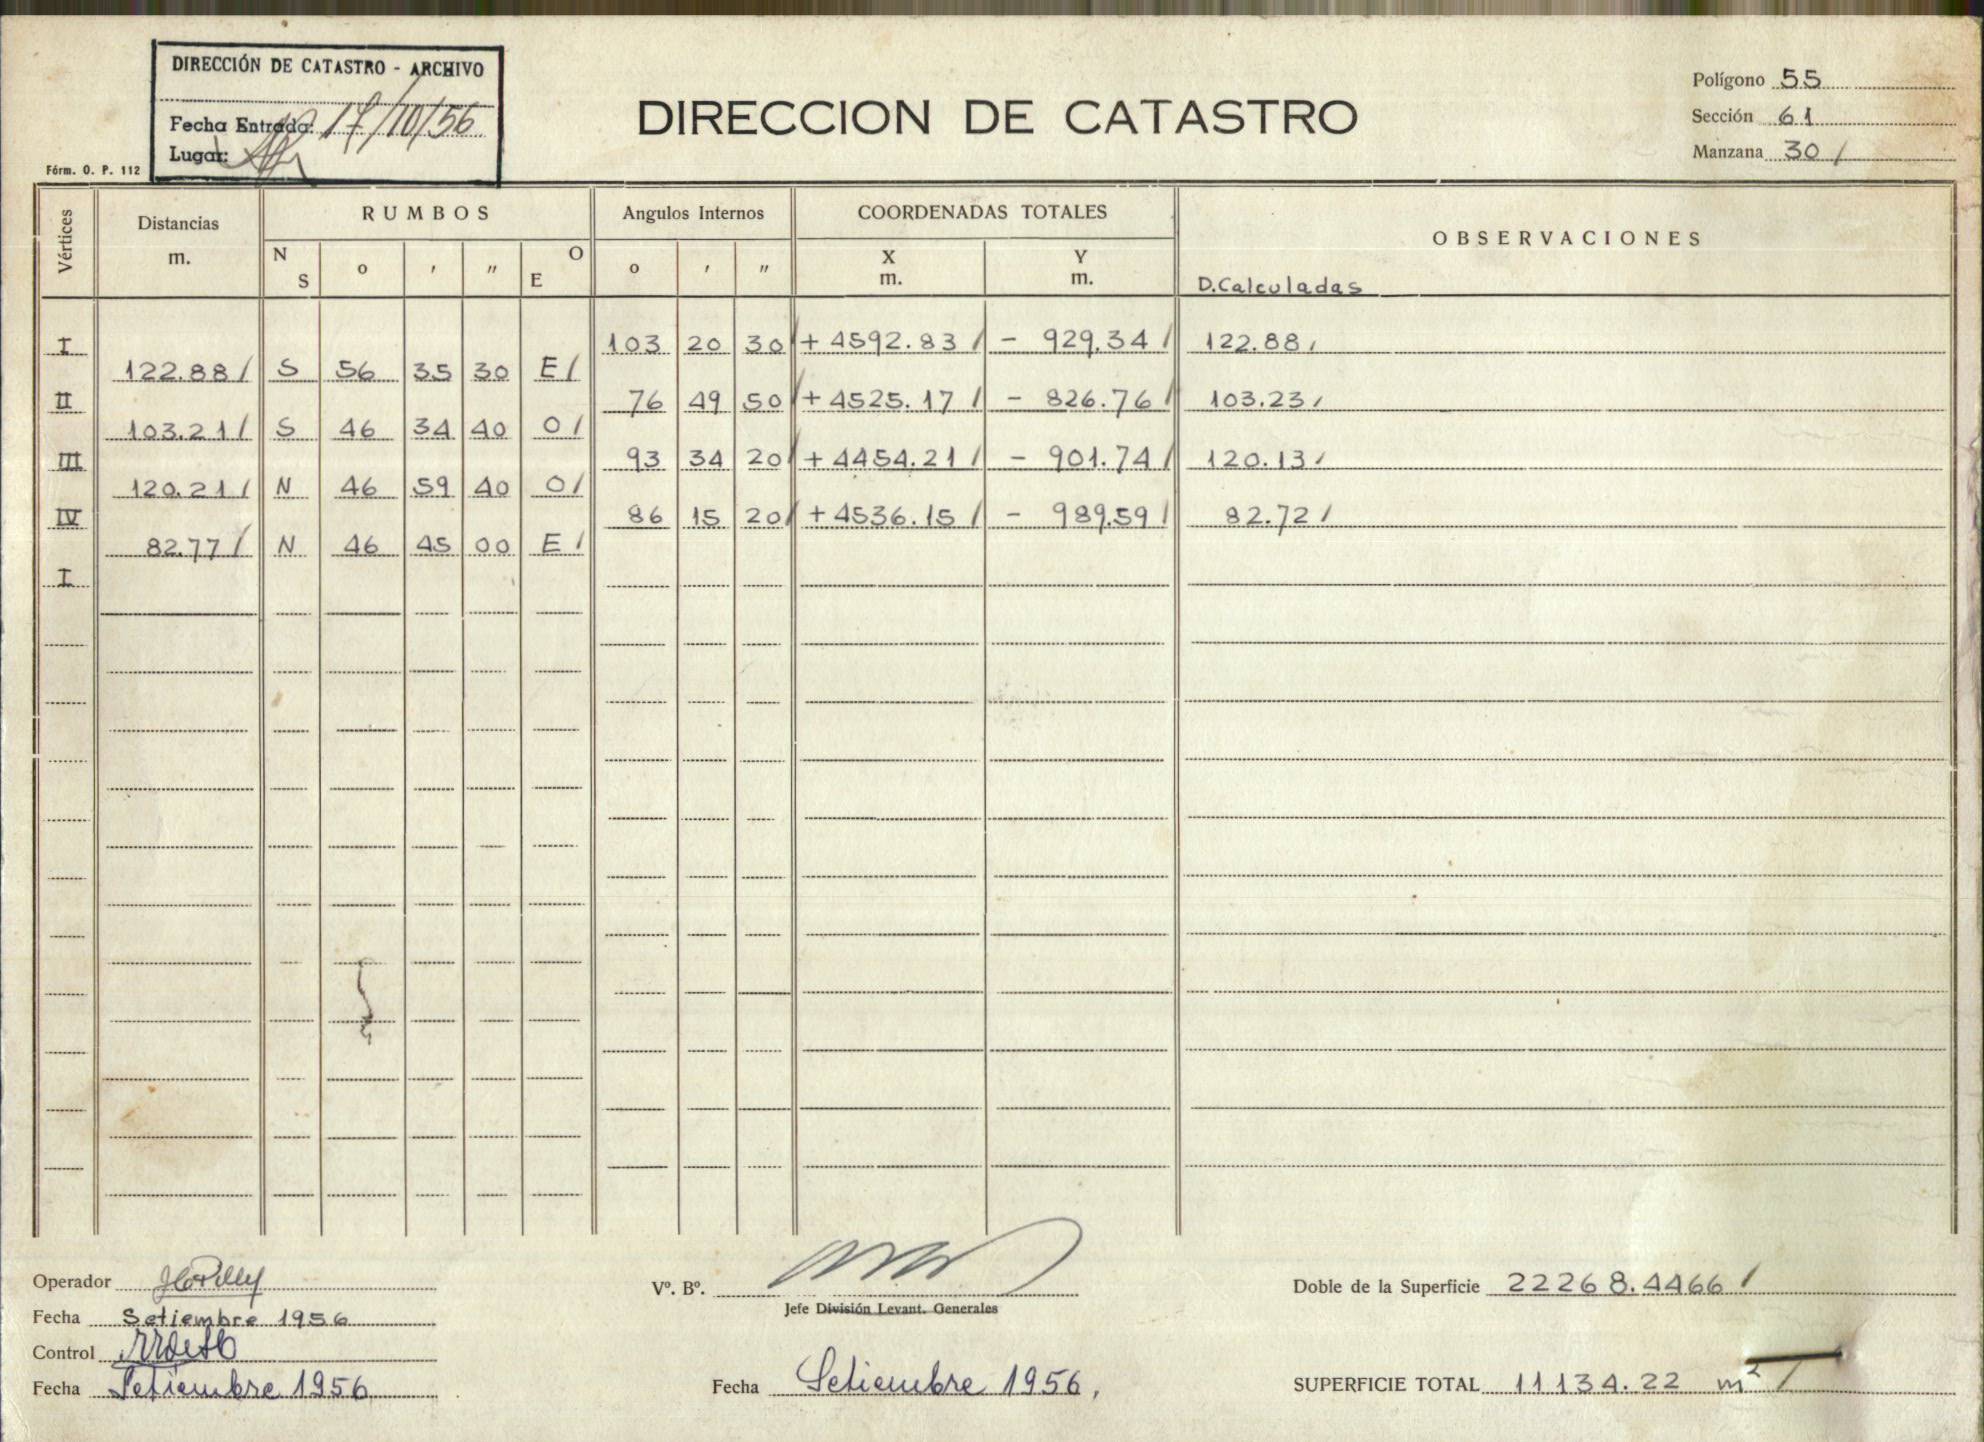 DIRECCIÓN DE CATASTRO - ARCHIVO
Fecha Entrada: 17/10/56
Lugar:
Fórm. O. P. 112
DIRECCION DE CATASTRO
Polígono 55
Sección 61
Manzana 30 /
Vértices Distancias m. RUMBOS Angulos Internos COORDENADAS TOTALES OBSERVACIONES
N S o ' " E O o ' " X m. Y m. D.Calculadas
I 103 20 30 / + 4592.83 / - 929.34 / 122.88 /
122.88 / S 56 35 30 E /
II 76 49 50 / + 4525.17 / - 826.76 / 103.23 /
103.21 / S 46 34 40 O /
III 93 34 20 / + 4454.21 / - 901.74 / 120.13 /
120.21 / N 46 59 40 O /
IV 86 15 20 / + 4536.15 / - 989.59 / 82.72 /
82.77 / N 46 45 00 E /
I
Operador
Fecha Setiembre 1956
Control
Fecha Setiembre 1956
Vº. Bº.
Jefe División Levant. Generales
Fecha Setiembre 1956,
Doble de la Superficie 22268.4466 /
SUPERFICIE TOTAL 11134.22 m² /